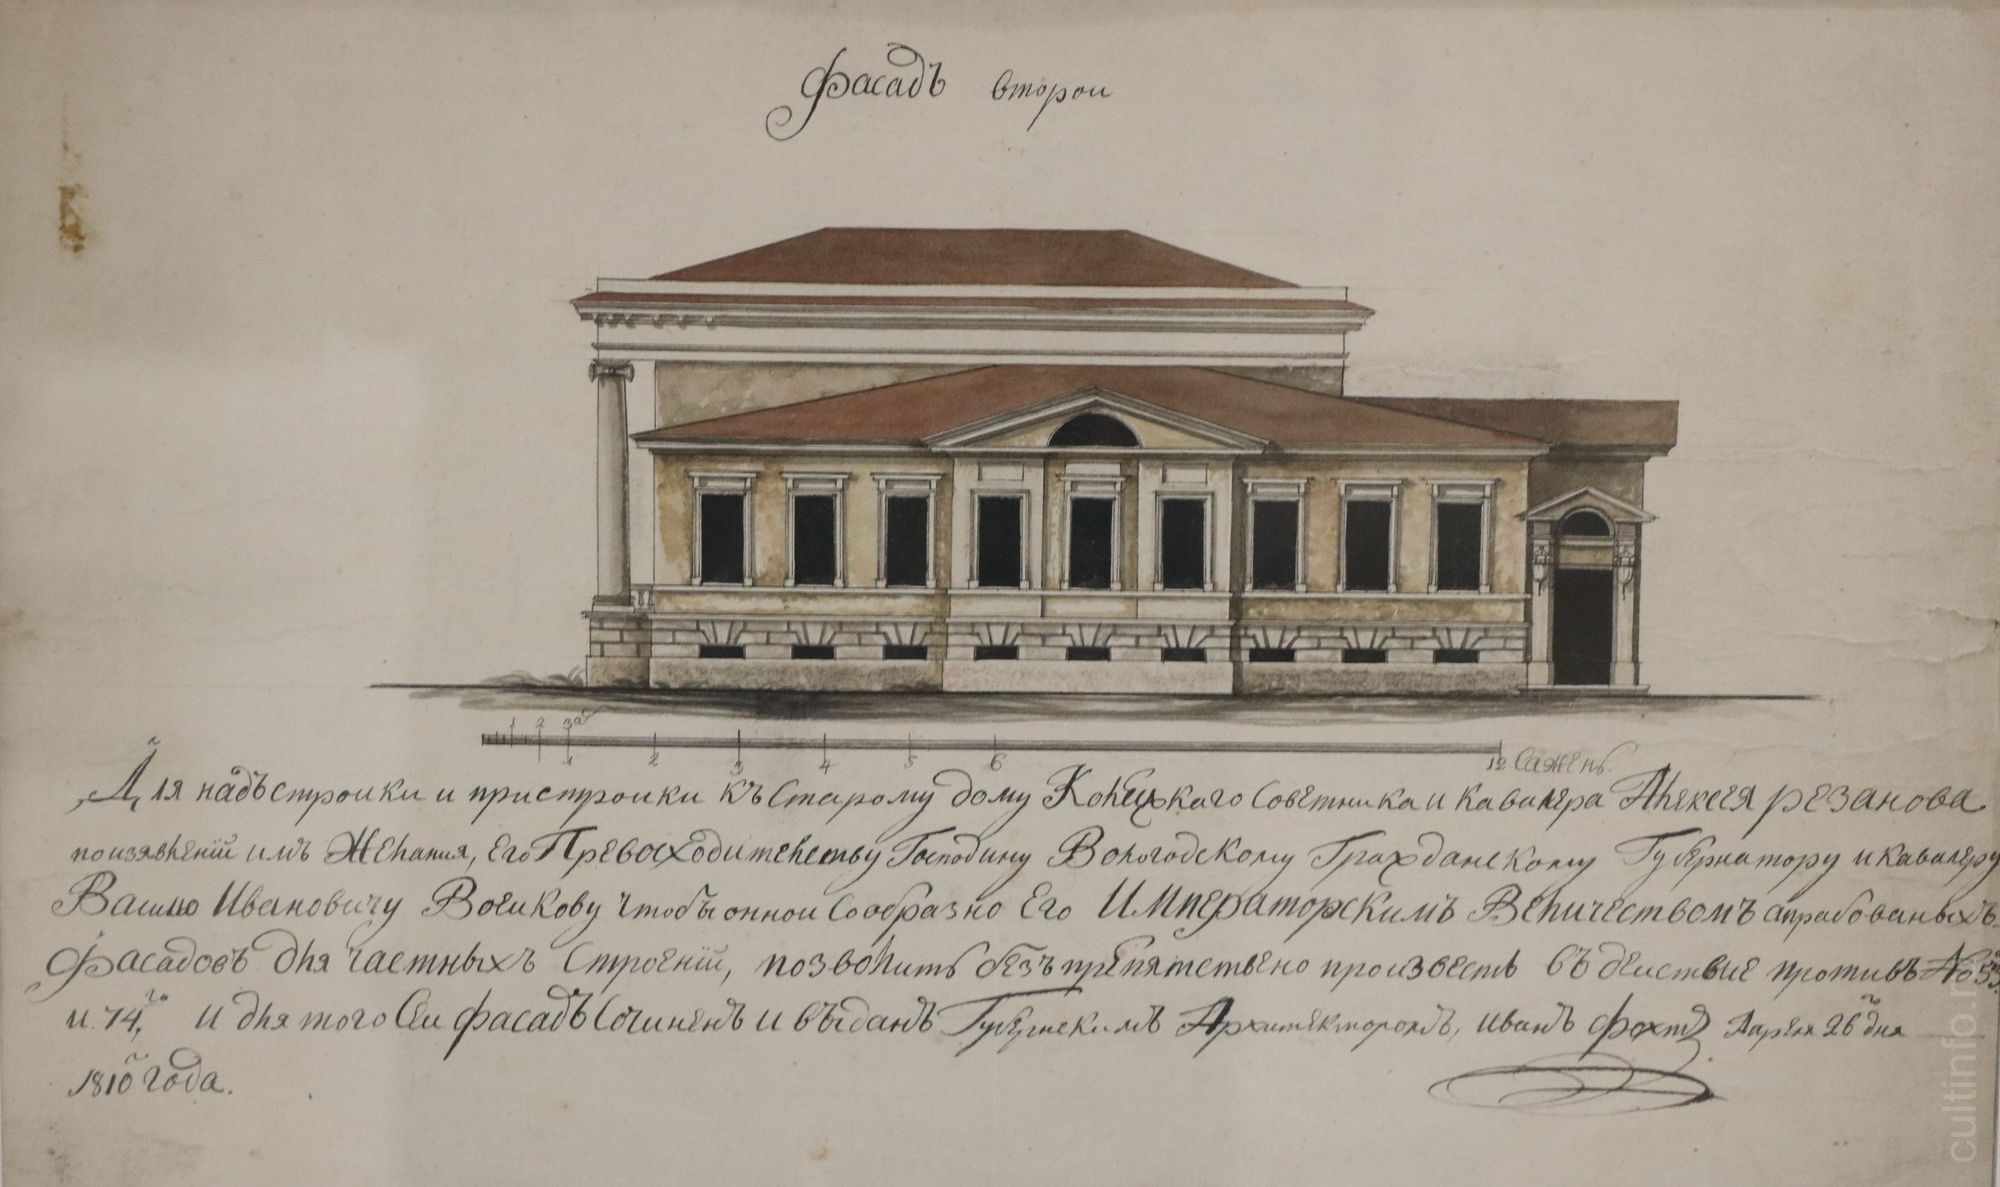 Фасадъ второи
1 2 3 а
1 2 3 4 5 6 12 Сажень.
Для надъстроики и пристроики къ Старому дому Колежскаго Советника и кавалера Алексея резанова
поизявлений имъ Желания, Его Превосходительству Господину Вологодскому Гражданскому Губернатору и кавалеру
Ивановичу Воеикову чтобы оннои Сообразно Его Императорскимъ Величествомъ апрабованыхъ
Фасадовъ для частныхъ Строений, позволить безъ препятствено произвесть въ деиствие противъ No
и 74, и для того Сеи фасадъ Сочиненъ и выданъ Губернскимъ Архитекторомъ, иванъ фохтъ Апреля 26 дня
1810 года.
cultinfo.r